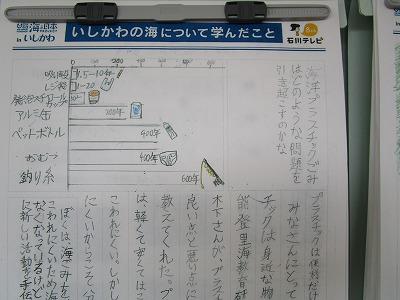 海と日本
PROJECT
in いしかわ
いしかわの海について学んだこと
石川テレビ
200
吸い殻
1.5-10年
レジ袋
1-20
発泡スチロールカップ
アルミ缶
200年
ペットボトル
400年
おむつ
400年
釣り糸
600年
海洋プラスチックごみ
はどのような問題を
引き起こすのかな
プラスチックは便利だけ
みなさんにとっ
チックは身近な物
能登里海教育研
木下さんが、プラスチ
良い点と悪い点
教えてくれた。プ
は、軽くて
こわれにくい。しかし
にくいからこそ
ぼくは、海ごみを
こわれにくいため海
なくなっているけど
に新しい活動を手伝